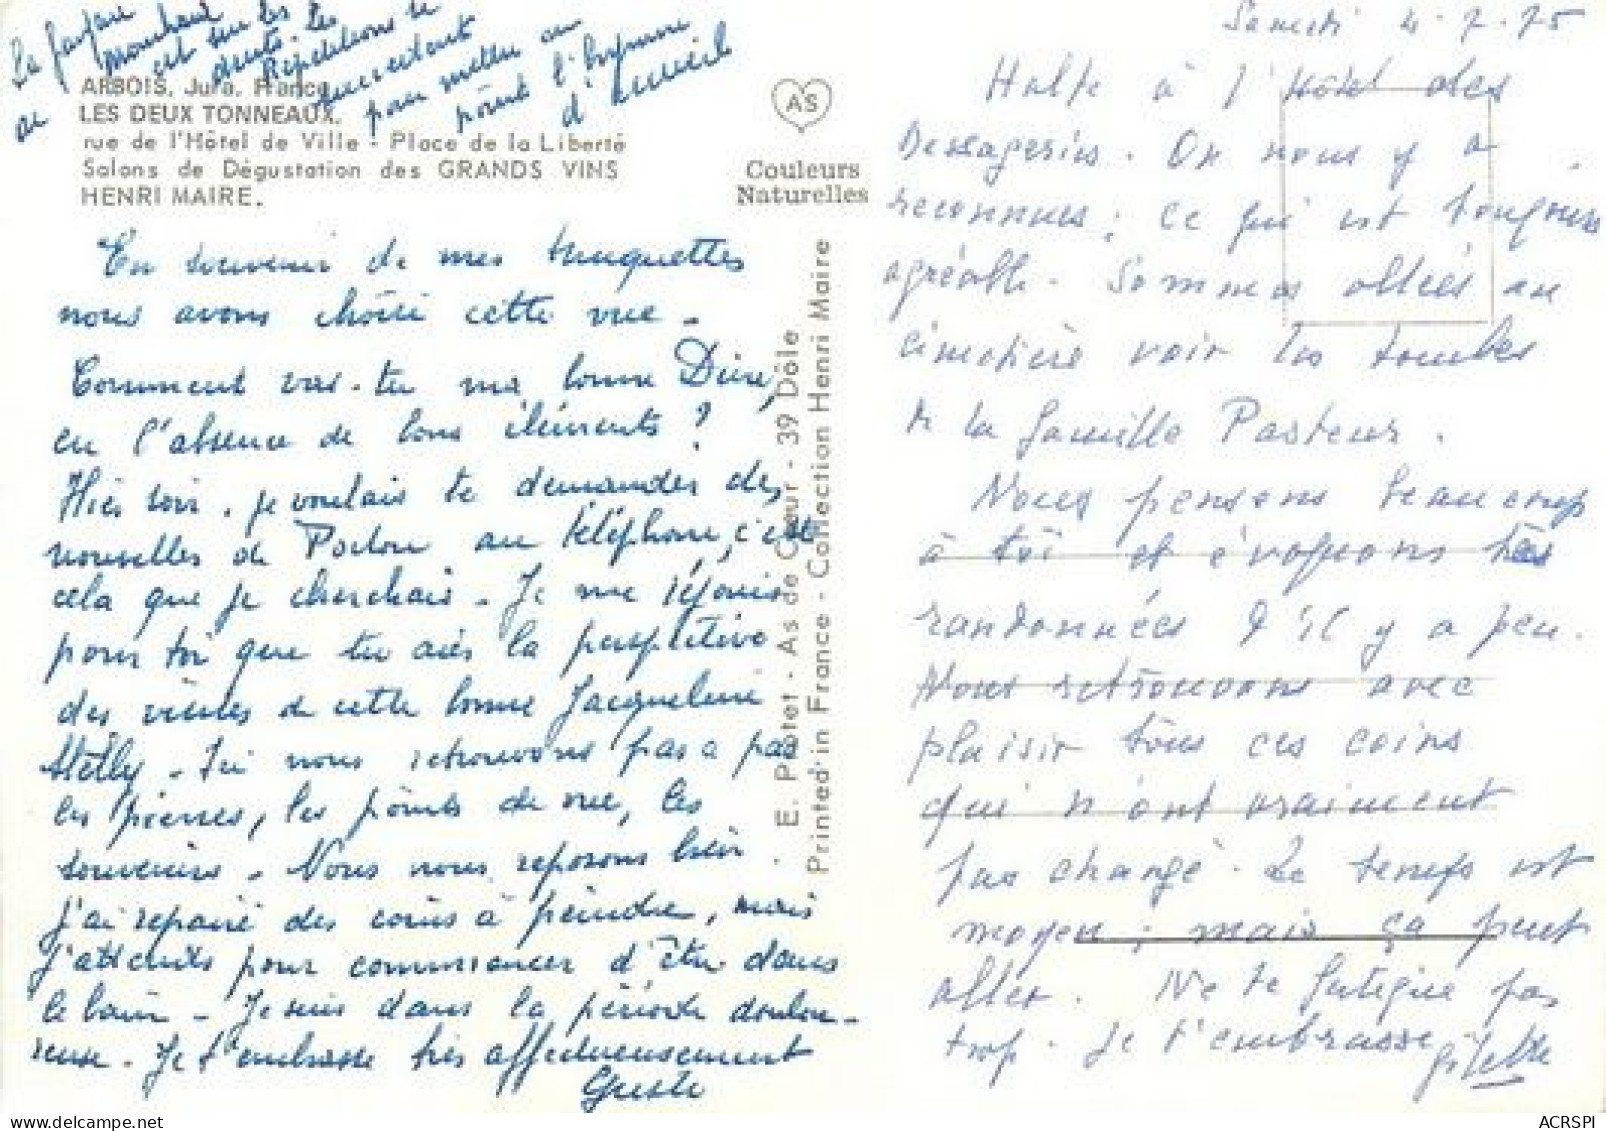 La fanfare
est sur les
dents. les
Répétitions se
succèdent
pour mettre au
point l'hymne
d'
au
ARBOIS. Jura. France
LES DEUX TONNEAUX.
rue de l'Hôtel de Ville - Place de la Liberté
Salons de Dégustation des GRANDS VINS
HENRI MAIRE.
AS
Couleurs
Naturelles
En souvenir de mes
nous avons choisi cette vue -
Comment vas-tu ma bonne
en l'absence de bons éléments ?
Hier soir, je voulais te demander des
nouvelles de au téléphone, c'est
cela que je cherchais - Je me réjouis
pour toi que tu aies la perspective
des visites de cette bonne Jacqueline
- Ici nous retrouvons pas a pas
les pierres, les points de vue, les
souvenirs - Nous nous reposons bien
J'ai repairé des coins à peindre, mais
j'attends pour commencer d'être dans
le bain - Je suis dans la période doulou-
reuse - Je t'embrasse très affectueusement
E. Protet - As de Cœur - 39 Dôle
Printed in France - Collection Henri Maire
Samedi 4.7.75
Halte à l'Hôtel des
Messageries. On nous y a
reconnues ; ce qui est toujours
agréable. Sommes allées au
cimetière voir les tombes
de la famille Pasteur.
Nous pensons beaucoup
à toi et évoquons tes
randonnées d'il y a peu.
Nous retrouvons avec
plaisir tous ces coins
qui n'ont vraiment
pas changé. Le temps est
moyen ; mais ça peut
aller. Ne te fatigue pas
trop. Je t'embrasse
Gilette
ACRSPI